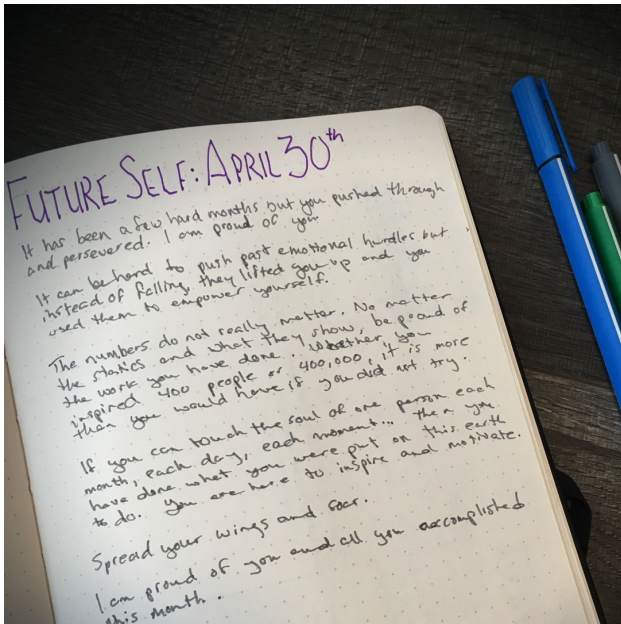 FUTURE SELF: APRIL 30th
It has been a few hard months but you pushed through
and persevered. I am proud of you
It can be hard to push past emotional hurdles but
instead of falling, they lifted you up and you
used them to empower yourself.
The numbers do not really matter. No matter
the statics and what they show, be proud of
the work you have done.. Whether, you
inspired 400 people or 400,000, it is more
than you would have if you did not try.
If you can touch the soul of one person each
month, each day, each moment... then you
have done what you were put on this earth
to do. You are here to inspire and motivate.
Spread your wings and soar.
I am proud of you and all you accomplished
this month.